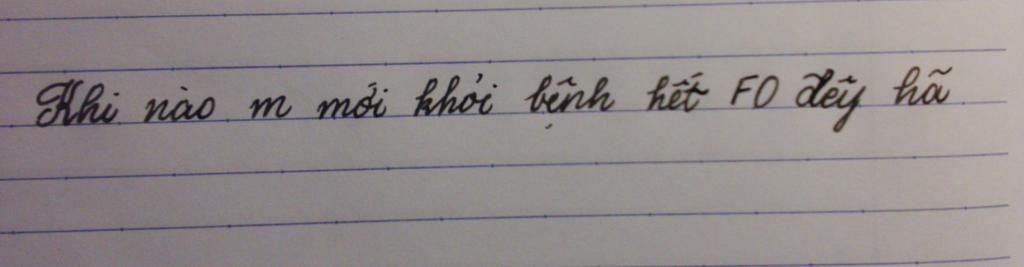 Khi nào m mới khỏi bệnh hết F0 đêý hã